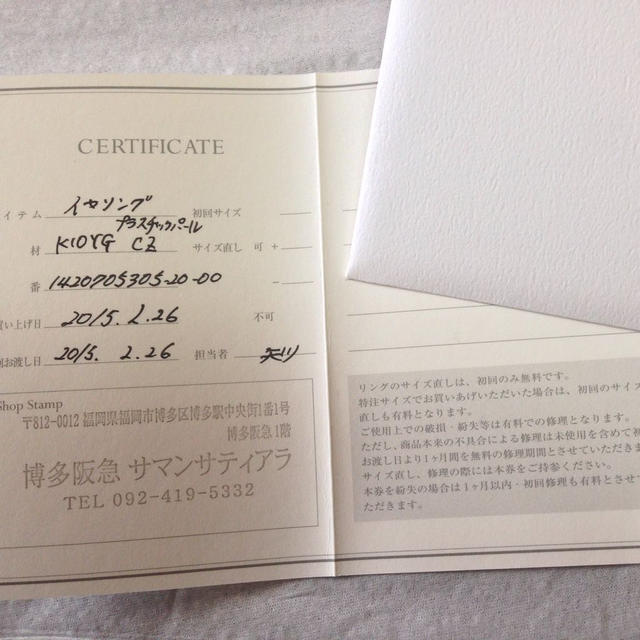 CERTIFICATE
イテム イヤリング 初回サイズ
プラスチックパール
材 K10YG CZ サイズ直し 可 +
番 1420705305-20-00 -
買い上げ日 2015. 2. 26 不可
回お渡し日 2015. 2. 26 担当者
Shop Stamp
〒812-0012 福岡県福岡市博多区博多駅中央街1番1号
博多阪急1階
博多阪急 サマンサティアラ
TEL 092-419-5332
リングのサイズ直しは、初回のみ無料です。
特注サイズでお買いあげいただいた場合は、初回のサイズ
直しも有料となります。
ご使用上での破損・紛失等は有料での修理となります。
ただし、商品本来の不具合による修理は未使用を含めて初
お渡し日より1ヶ月間を無料の修理期間とさせていただきま
サイズ直し、修理の際には本券をご持参ください。
本券を紛失の場合は1ヶ月以内・初回修理も有料とさせて
ただきます。